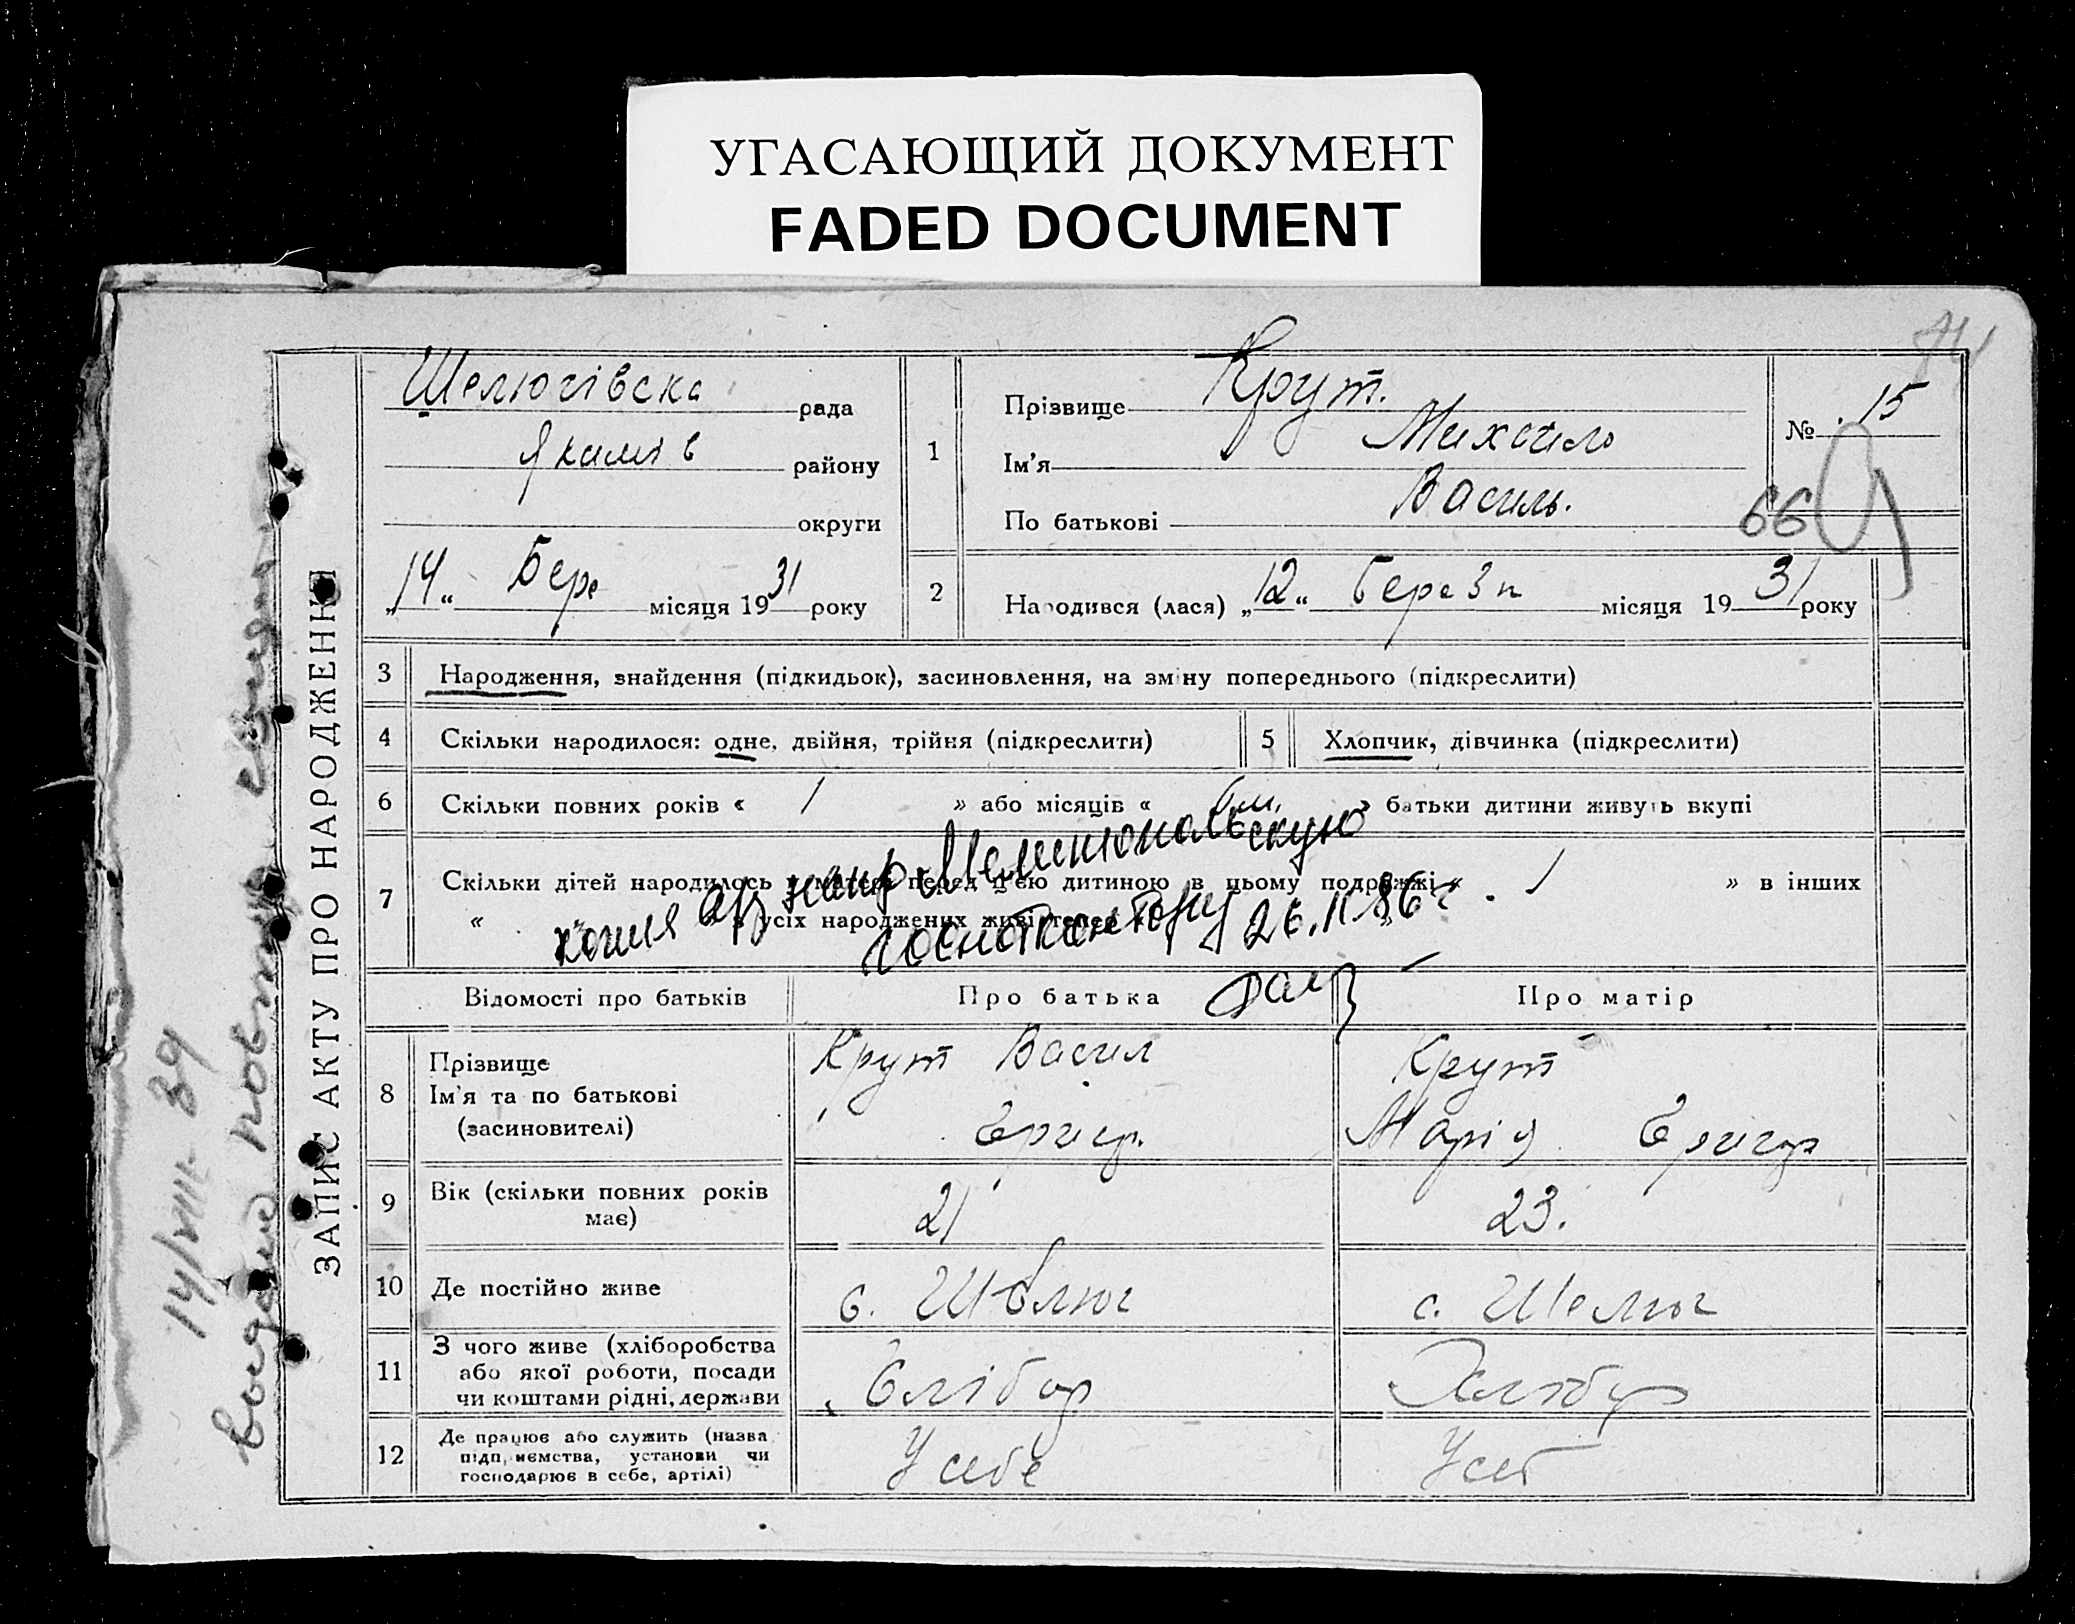 УГАСАЮЩИЙ ДОКУМЕНТ
FADED DOCUMENT
ЗАПИС АКТУ ПРО НАРОДЖЕННЯ
Шелюгівська рада
Якимів району
округи
„14“ Бере місяця 1931 року
1
Прізвище Крут.
Ім'я Михайло
По батькові Василь.
№ 15
66
2
Народився (лася) „12“ березн місяця 1931 року
3 Народження, знайдення (підкидьок), засиновлення, на зміну попереднього (підкреслити)
4 Скільки народилося: одне, двійня, трійня (підкреслити)
5 Хлопчик, дівчинка (підкреслити)
6 Скільки повних років « 1 » або місяців « 6 м. » батьки дитини живуть вкупі
7 Скільки дітей народилось у матері перед цією дитиною в цьому подружжі « 1 » в інших
« » усіх народжених живі тепер
копия а/з напр Мелитопольскую
госнотконтору 26.11.86 г.
Відомості про батьків
Про батька
Про матір
8 Прізвище
Ім'я та по батькові
(засиновителі)
Крут Васил
Григор.
Крут
Марія Григор
9 Вік (скільки повних років має)
21
23.
10 Де постійно живе
с. Шелюг
с. Шелюг
11 З чого живе (хліборобства
або якої роботи, посади
чи коштами рідні, держави
Хлібор
Хлібор
12 Де працює або служить (назва
підприємства, установи чи
господарює в себе, артілі)
У себе
У себ
14/VIII-39
выдано повторн